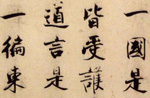 一國是
皆受護
道言是
一徧東